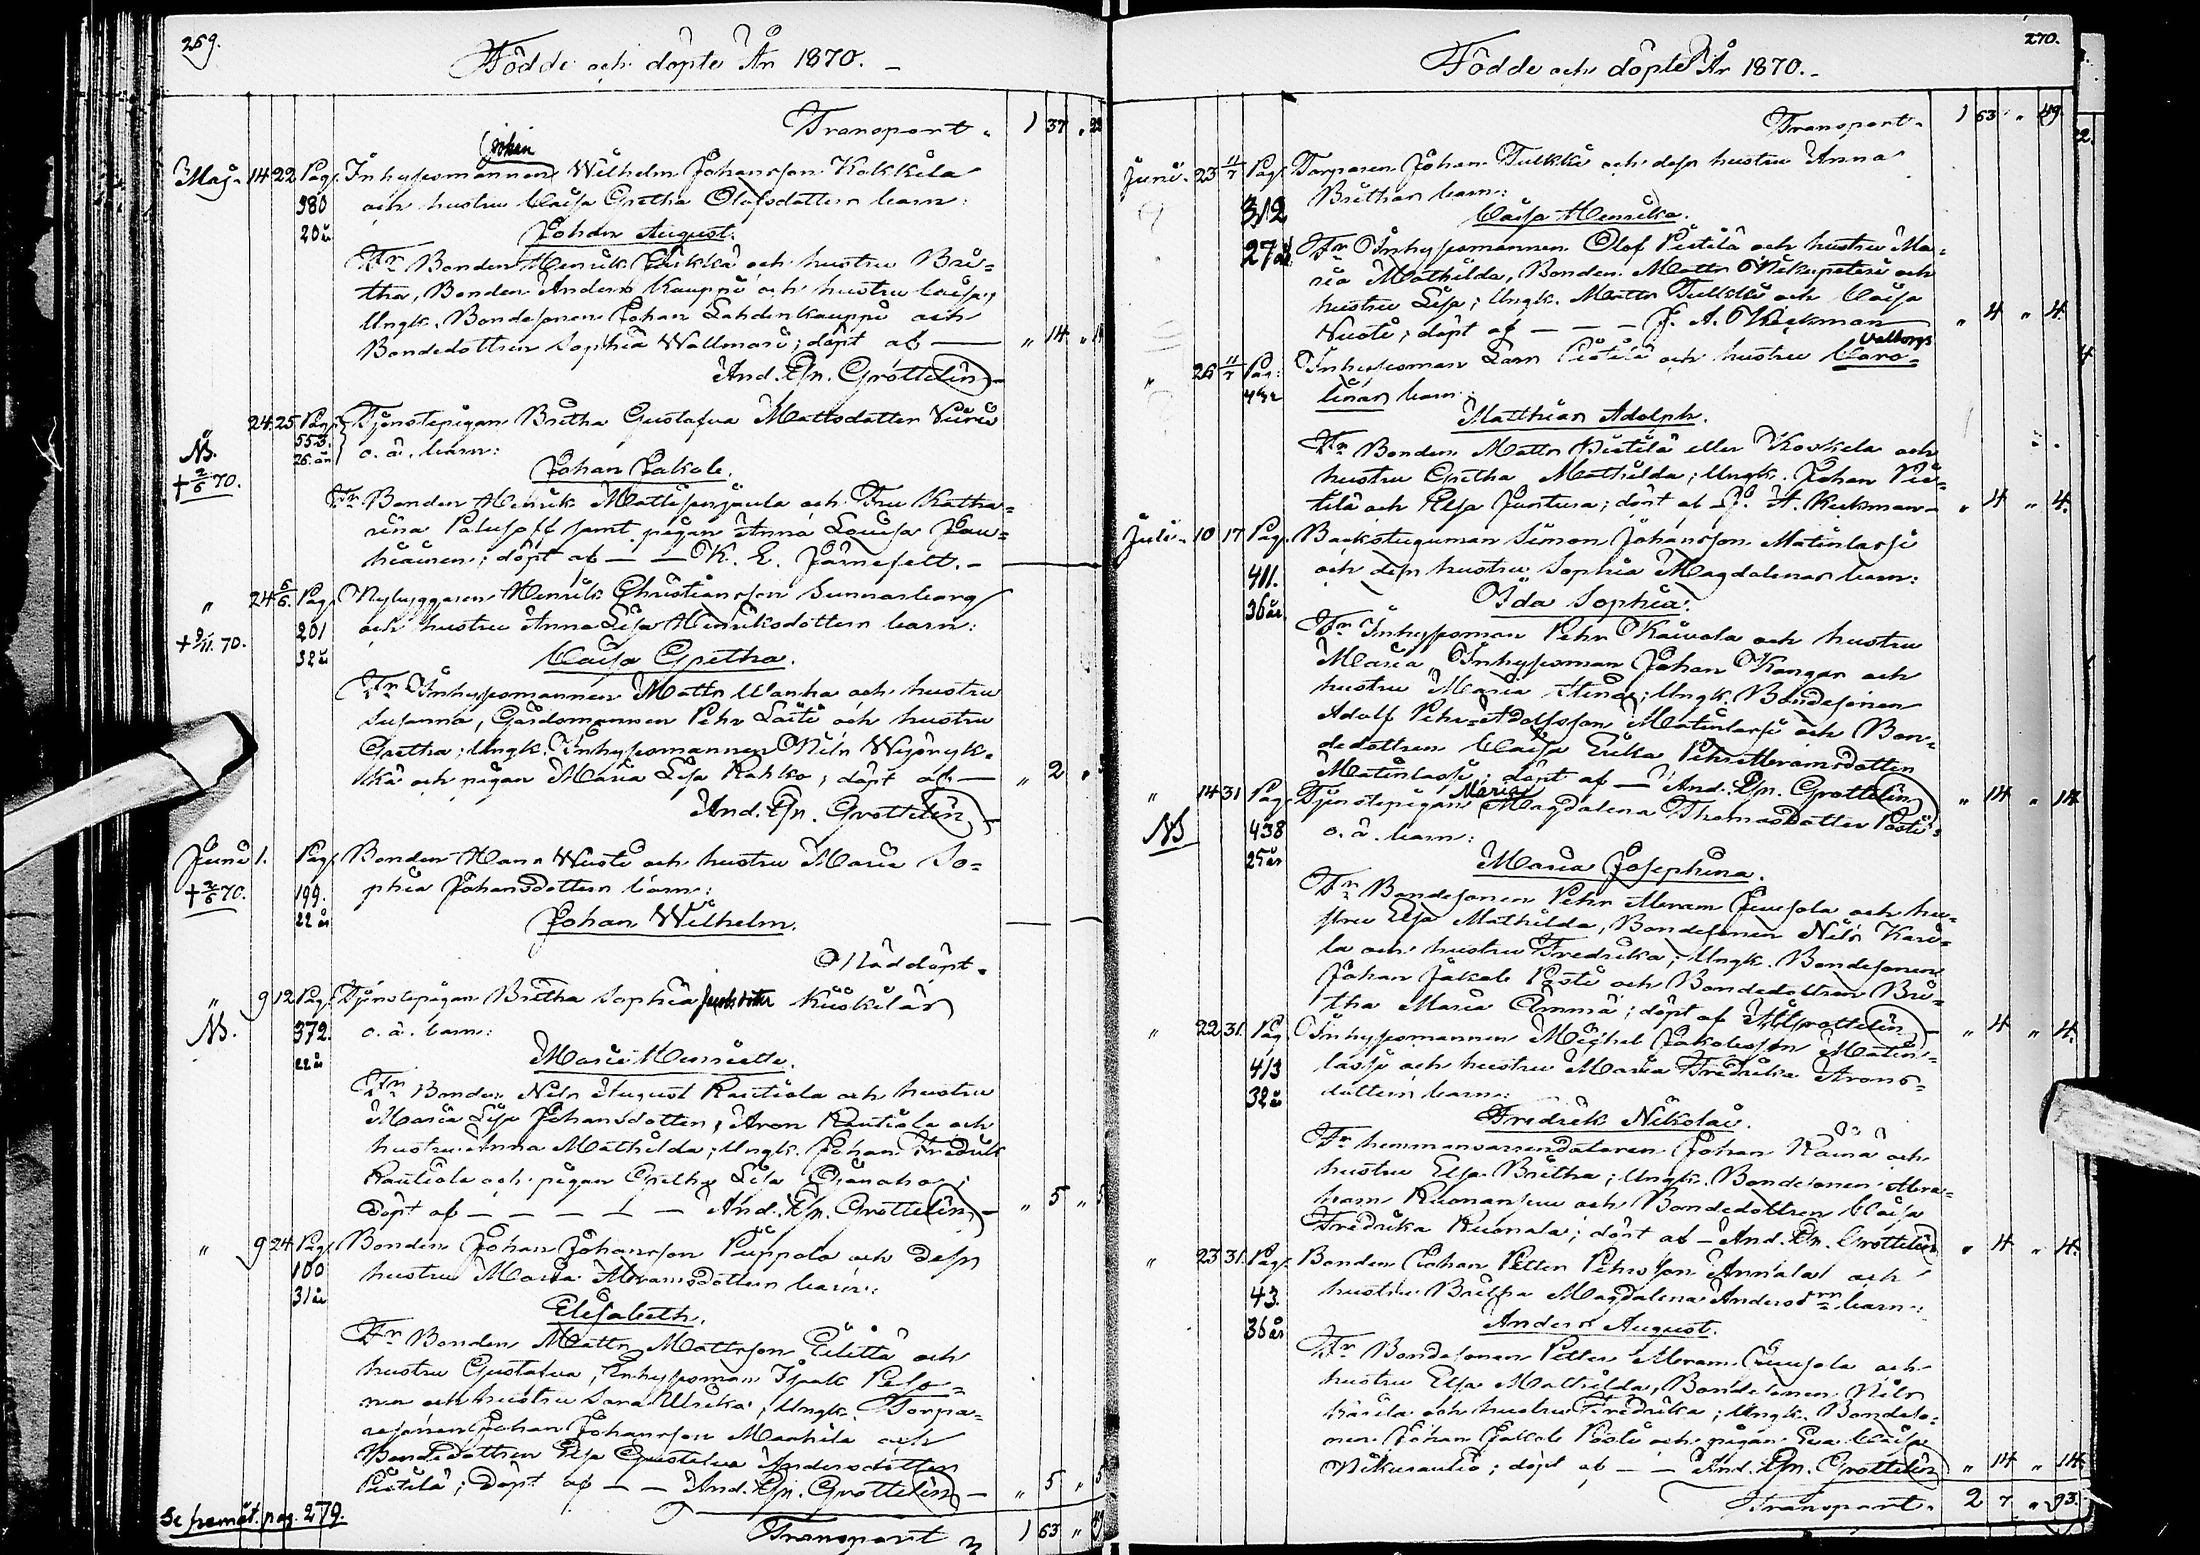 269.
Födde och döpte År 1870.
Transport. 1 37 " 22
Johan
Maj. 14 22 Pag. Inhysesmannen Wilhelm Johansson Kokkila
380 och hustru Caisa Gretha Olofsdotters barn:
20 år Johan August.
Fr. Bonden Henrik och hustru Bri-
tha, Bonden Anders Kauppi och hustru Caisa;
Ungk. Bondesonen Johan Lahdenkauppi och
Bondedottren Sophia Wallmari; döpt af — " 14 "
And. Joh. Grottelin
24 25 Pag. Tjenstepigan Britha Gustafva Mattsdotter
NB. 553. o. ä. barn:
26. år
+ 2/6 70. Johan Jakob.
Fr. Bonden Henrik och Fru Katha-
rina samt pigan Anna Lovisa
döpt af — — K. E. Järnefelt. —
" 24 5/6. Pag. Nybyggaren Henrik Christiansson Sunnarborg
+ 9/11. 70. 201 och hustru Anna Lisa Henriksdotters barn:
32 år Caisa Gretha.
Fr. Inhysesmannen Matts Wanha och hustru
Susanna, Gårdsmannen Pehr Laiti och hustru
Gretha; Ungk. Inhysesmannen Nils
kä och pigan Maria Lisa Rahko; döpt af — " 2 "
And. Joh. Grottelin
Juni 1. Pag. Bonden Hans Wuoti och hustru Maria So-
+ 2/6 70. 199. phia Johansdotters barn:
22 år Johan Wilhelm.
Nöddöpt.
" 9 12 Pag. Tjenstepigan Britha Sophia Kuskelas
NB. 372. o. ä. barn:
22 år Maria Henriette.
Fr. Bonden Nils August Rautiola och hustru
Maria Lisa Johansdotter; Aron Rautiola och
hustru Anna Mathilda; Ungk. Johan Fredrik
Rautiola och pigan Gretha Lisa
döpt af — — — — — And. Joh. Grottelin — " 5 " 5
" 9 24 Pag. Bonden Johan Johansson Puppola och dess
100 hustru Maria Abramsdotters barn:
31 år Elisabeth.
Fr. Bonden Matts Mattsson och
hustru Gustafva, Inhysesman Isak Pelto-
nen och hustru Sara Ulrika; Ungk. Torpa-
resonen Johan Johansson Markila och
Bondedottren Elsa Gustafva Andersdotter
Pietilä; döpt af — — And. Joh. Grottelin — " 5 " 5
Se framåt. pag. 279.
Transport 1 63 " 49
270.
Födde och döpte År 1870.
Transport. 1 63 " 49.
Juni. 23 11/7 Pag. Torparen Johan Tulkki och dess hustru Anna
312 Brithas barn:
Caisa Henrika.
27 år Fr. Inhysesmannen Olof Pietilä och hustru Ma-
ria Mathilda, Bonden Matts och
hustru Lisa; Ungk. Matts Tulkki och Caisa
Wuoti; döpt af — — — J. A. Keckman " 4 " 4.
Valborgs
" 26 11/7 Pag. Inhysesman Lars Pietilä och hustru Caro-
linas barn:
Matthias Adolph.
Fr. Bonden Matts Pietilä eller Koskela och
hustru Gretha Mathilda; Ungk. Johan Pie-
tilä och Elsa Juntura; döpt af J. A. Keckman " 4 " 4.
Juli. 10 17 Pag. Backstuguman Simon Johansson Matinlassi
411. och dess hustru Sophia Magdalenas barn:
36 år Ida Sophia.
Fr. Inhysesman Pehr Kaivola och hustru
Maria, Inhysesman Johan Kangas och
hustru Maria Stina; Ungk. Bondesonen
Adolf Pehr-Adolfsson Matinlassi och Bon-
dedottren Caisa Erika Pehr Abramsdotter
Matinlassi; döpt af — And. Joh. Grottelin " 14 " 14
Maria
" 14 31 Pag. Tjenstepigan Magdalena Thomasdotter Posti
NB 438 o. ä. barn:
25 år Maria Josephina.
Fr. Bondesonen Pehr Abram Juusola och hu-
stru Elsa Mathilda, Bondesonen Nils Kari-
la och hustru Fredrika; Ungk. Bondesonen
Johan Jakob Posti och Bondedottren Bri-
tha Maria Ämmä; döpt af A. J. Grottelin — " 4 " 4.
" 22 31. Pag. Inhysesmannen Michel Jakobsson Matin-
413 lassi och hustru Maria Fredrika Arons-
32 år dotters barn:
Fredrik Nikolai.
Fr. hemmansarrendatoren Johan Räinä och
hustru Elsa Britha; Ungk. Bondesonen Abra-
ham och Bondedottren Caisa
Fredrika Ruonala; döpt af — And. Joh. Grottelin " 4 " 4.
" 23 31. Pag. Bonden Johan Petter Pehrsson Annala och
43. hustru Britha Magdalena Andersdrs barn:
36 år Anders August.
Fr. Bondesonen Petter Abram Juusola och
hustru Elsa Mathilda, Bondesonen Nils
Karila och hustru Fredrika; Ungk. Bondeso-
nen Johan Jakob Posti och pigan Eva Caisa
Niskasaario; döpt af — — And. Joh. Grottelin " 14 " 14.
Transport. 2 7 " 93.